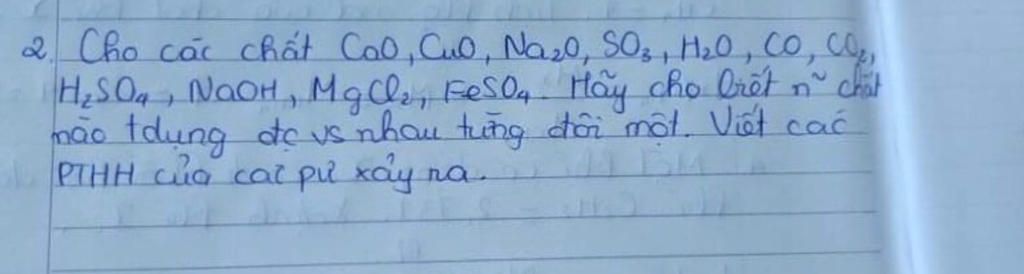 2. Cho các chất CaO, CuO, Na₂O, SO₃, H₂O, CO, CO₂,
H₂SO₄, NaOH, MgCl₂, FeSO₄. Hãy cho biết n~ chất
nào tdụng đc vs nhau từng đôi một. Viết các
PTHH của các pứ xảy ra.